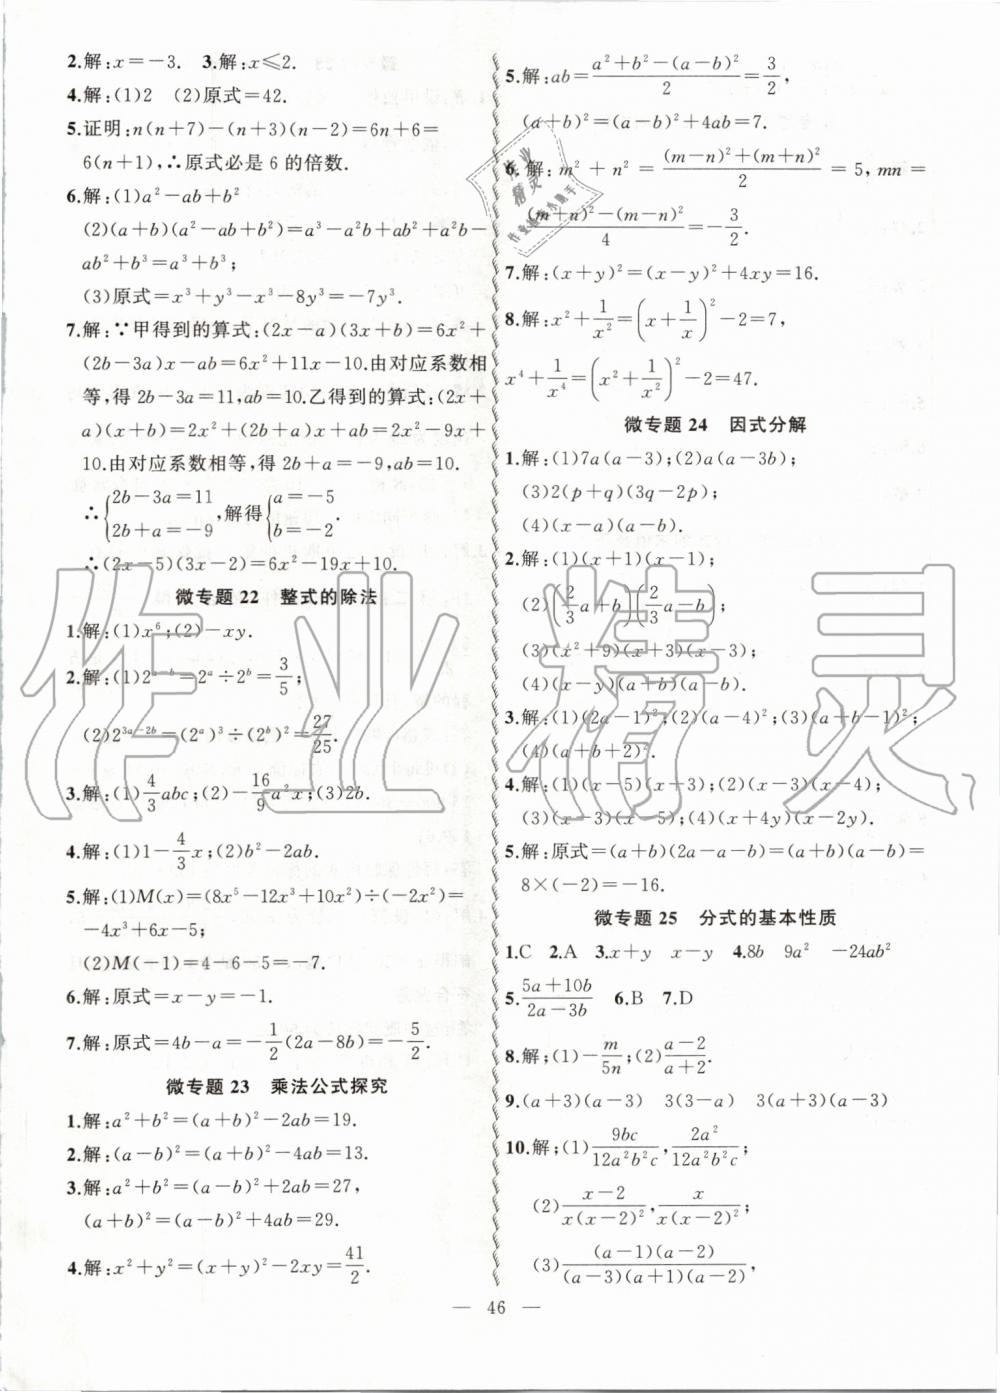 2.解:x=-3.  3.解:x≤2.
4.解:(1)2  (2)原式=42.
5.证明:n(n+7)-(n+3)(n-2)=6n+6=
6(n+1),∴原式必是 6 的倍数.
6.解:(1)a²-ab+b²
(2)(a+b)(a²-ab+b²)=a³-a²b+ab²+a²b-
ab²+b³=a³+b³;
(3)原式=x³+y³-x³-8y³=-7y³.
7.解:∵甲得到的算式:(2x-a)(3x+b)=6x²+
(2b-3a)x-ab=6x²+11x-10.由对应系数相
等,得 2b-3a=11,ab=10.乙得到的算式:(2x+
a)(x+b)=2x²+(2b+a)x+ab=2x²-9x+
10.由对应系数相等,得 2b+a=-9,ab=10.
∴{2b-3a=11, 2b+a=-9,解得{a=-5, b=-2.
∴(2x-5)(3x-2)=6x²-19x+10.
微专题 22  整式的除法
1.解:(1)x⁶;(2)-xy.
2.解:(1)2^(a-b)=2^a÷2^b=3/5;
(2)2^(3a-2b)=(2^a)³÷(2^b)²=27/25.
3.解:(1)-4/3abc;(2)-16/9a²x;(3)2b.
4.解:(1)1-4/3x;(2)b²-2ab.
5.解:(1)M(x)=(8x⁵-12x³+10x²)÷(-2x²)=
-4x³+6x-5;
(2)M(-1)=4-6-5=-7.
6.解:原式=x-y=-1.
7.解:原式=4b-a=-1/2(2a-8b)=-5/2.
微专题 23  乘法公式探究
1.解:a²+b²=(a+b)²-2ab=19.
2.解:(a-b)²=(a+b)²-4ab=13.
3.解:a²+b²=(a-b)²+2ab=27,
(a+b)²=(a-b)²+4ab=29.
4.解:x²+y²=(x+y)²-2xy=41/2.
5.解:ab=(a²+b²-(a-b)²)/2=3/2,
(a+b)²=(a-b)²+4ab=7.
6.解:m²+n²=((m-n)²+(m+n)²)/2=5,mn=
((m+n)²-(m-n)²)/4=-3/2.
7.解:(x+y)²=(x-y)²+4xy=16.
8.解:x²+1/x²=(x+1/x)²-2=7,
x⁴+1/x⁴=(x²+1/x²)²-2=47.
微专题 24  因式分解
1.解:(1)7a(a-3);(2)a(a-3b);
(3)2(p+q)(3q-2p);
(4)(x-a)(a-b).
2.解:(1)(x+1)(x-1);
(2)(2/3a+b)(2/3a-b);
(3)(x²+9)(x+3)(x-3);
(4)(x-y)(a+b)(a-b).
3.解:(1)(2a-1)²;(2)(a-4)²;(3)(a+b-1)²;
(4)(a+b+2)².
4.解:(1)(x-5)(x+3);(2)(x-3)(x-4);
(3)(x-3)(x-5);(4)(x+4y)(x-2y).
5.解:原式=(a+b)(2a-a-b)=(a+b)(a-b)=
8×(-2)=-16.
微专题 25  分式的基本性质
1.C  2.A  3.x+y  x-y  4.8b  9a²  -24ab²
5.(5a+10b)/(2a-3b)  6.B  7.D
8.解:(1)-m/5n;(2)(a-2)/(a+2).
9.(a+3)(a-3)  3(3-a)  3(a+3)(a-3)
10.解:(1)9bc/12a²b²c,2a²/12a²b²c;
(2)(x-2)/x(x-2)²,x/x(x-2)²;
(3)(a-1)(a-2)/(a-3)(a+1)(a-2),
— 46 —
作业精灵